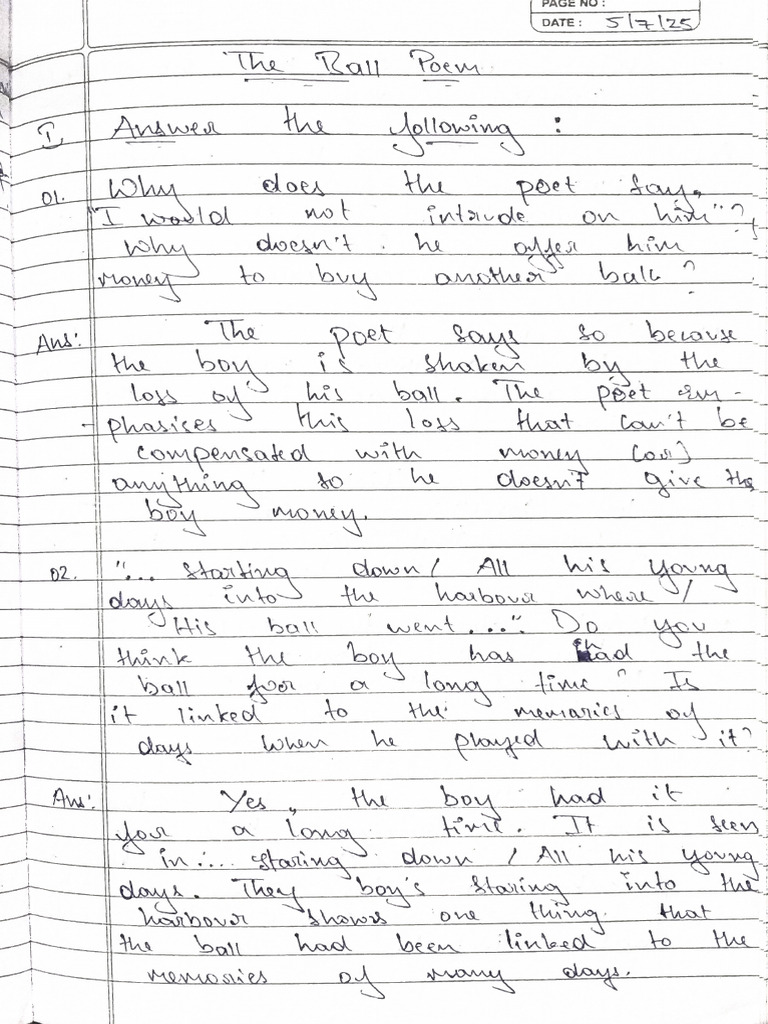 PAGE NO :
DATE : 5/7/25
The Ball Poem
I Answer the following :
01. Why does the poet say,
"I would not intrude on him"?
Why doesn't he offer him
money to buy another ball?
Ans: The poet says so because
the boy is shaken by the
loss of his ball. The poet em-
phasises this loss that can't be
compensated with money (or)
anything so he doesn't give the
boy money.
02. "... starting down / All his young
days into the harbour where /
His ball went...." Do you
think the boy has had the
ball for a long time? Is
it linked to the memories of
days when he played with it?
Ans: Yes, the boy had it
for a long time. It is seen
in .... staring down / All his young
days. They boy's staring into the
harbour shows one thing that
the ball had been linked to the
memories of many days.